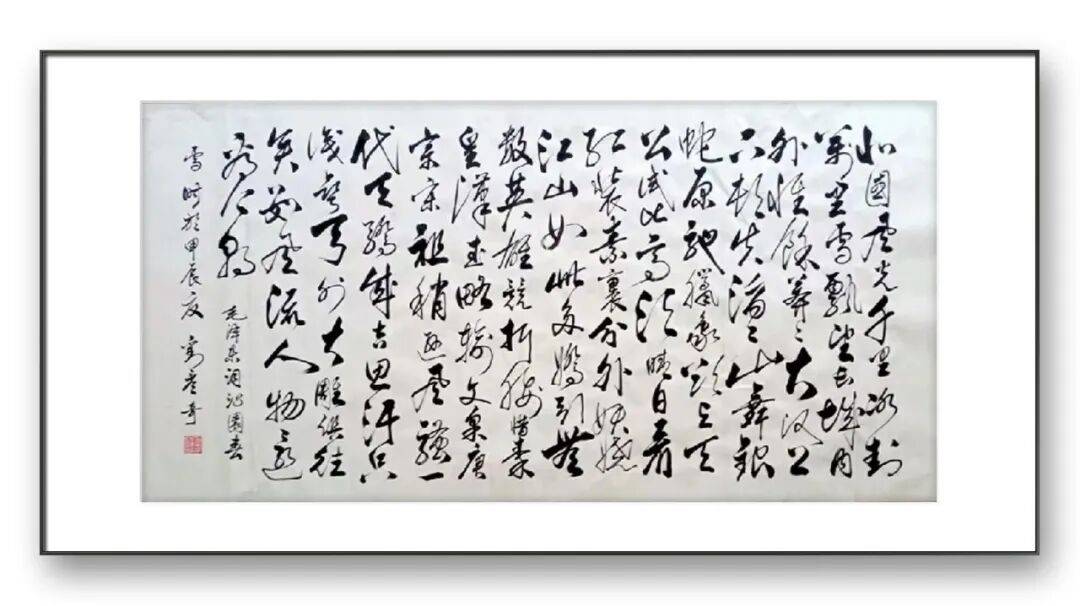 北国风光千里冰封
萬里雪飄望长城内
外惟餘莽〻大河上
下顿失滔〻山舞銀
蛇原馳臘象欲与天
公试比高须晴日看
红装素裹分外妖娆
江山如此多嬌引無
数英雄競折腰惜秦
皇漢武略输文采唐
宗宋祖稍逊风骚一
代天骄成吉思汗只
识弯弓射大雕俱往
矣数风流人物还
看今朝
毛泽东词沁园春
雪时於甲辰夏